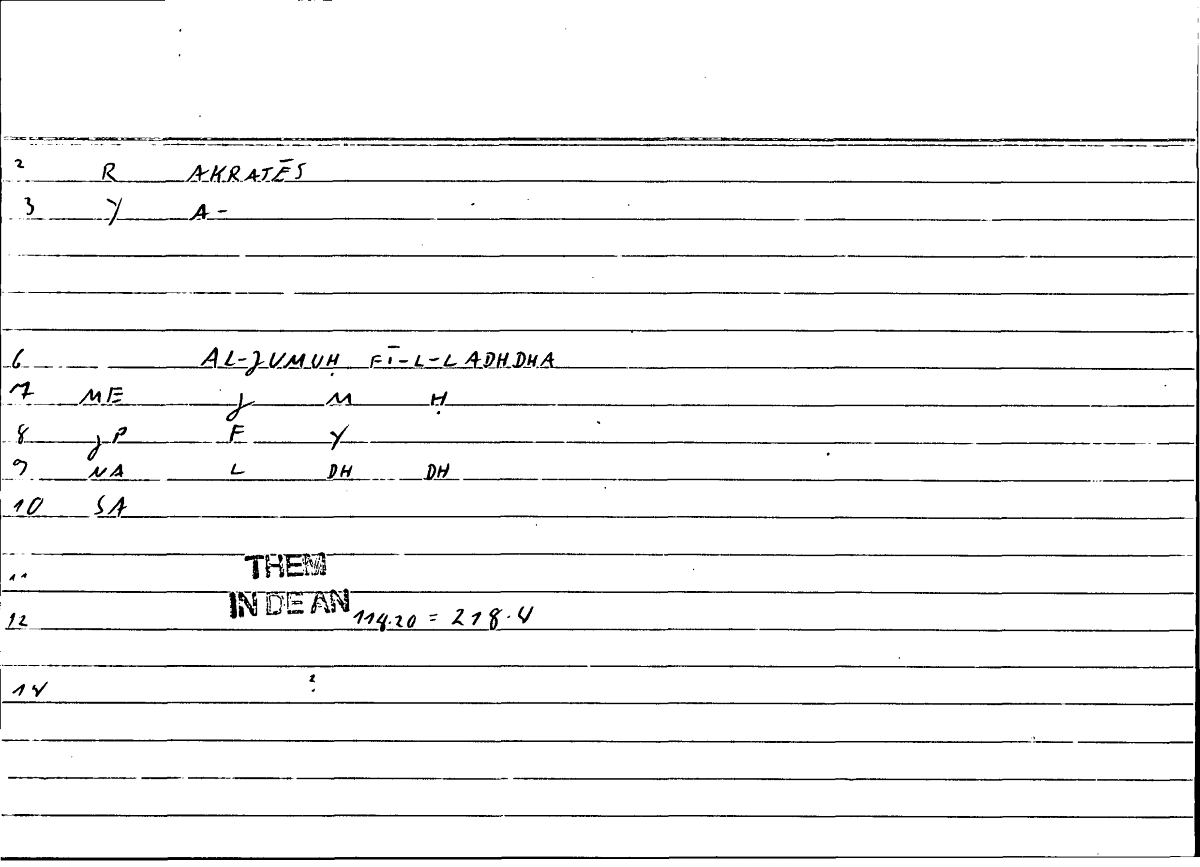 2 R AKRATĒS
3 Y A-
6 AL-JUMUḤ FĪ-L-LADHDHA
7 ME J M Ḥ
8 JP F Y
9 NA L DH DH
10 SA
11 THEM
12 IN DE AN 114.20 = 218.4
14